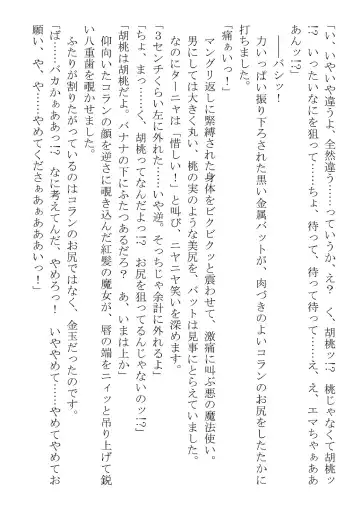 「い、いやいや違うよ、全然違う……っていうか、え？　く、胡桃ッ!?　桃じゃなくて胡桃ッ
!?　いったいなにを狙って……ちょ、待って、待って待って……え、え、エマちゃぁああ
あんッ!?」
――バシッ！
　力いっぱい振り下ろされた黒い金属バットが、肉づきのよいコランのお尻をしたたかに
打ちました。
「痛ぁいっ！」
　マングリ返しに緊縛された身体をビクビクッと震わせて、激痛に叫ぶ悪の魔法使い。
　男にしては大きく丸い、桃の実のような美尻を、バットは見事にとらえていました。
　なのにターニャは「惜しい！」と叫び、ニヤニヤ笑いを深めます。
「３センチくらい左に外れた……いや逆。そっちじゃ余計に外れるよ」
「ちょ、まっ……く、胡桃ってなんだよっ!?　お尻を狙ってるんじゃないのッ!?」
「胡桃は胡桃だよ。バナナの下にふたつあるだろ？　あ、いまは上か」
　仰向いたコランの顔を逆さに覗き込んだ紅髪の魔女が、唇の端をニィッと吊り上げて鋭
い八重歯を覗かせました。
　ふたりが割りたがっているのはコランのお尻ではなく、金玉だったのです。
「ば……バカかぁああっ!?　なに考えてんだ、やめろっ！　いややめて……やめてやめてお
願い、や、や……やめてくださぁあぁああぁいっ！」